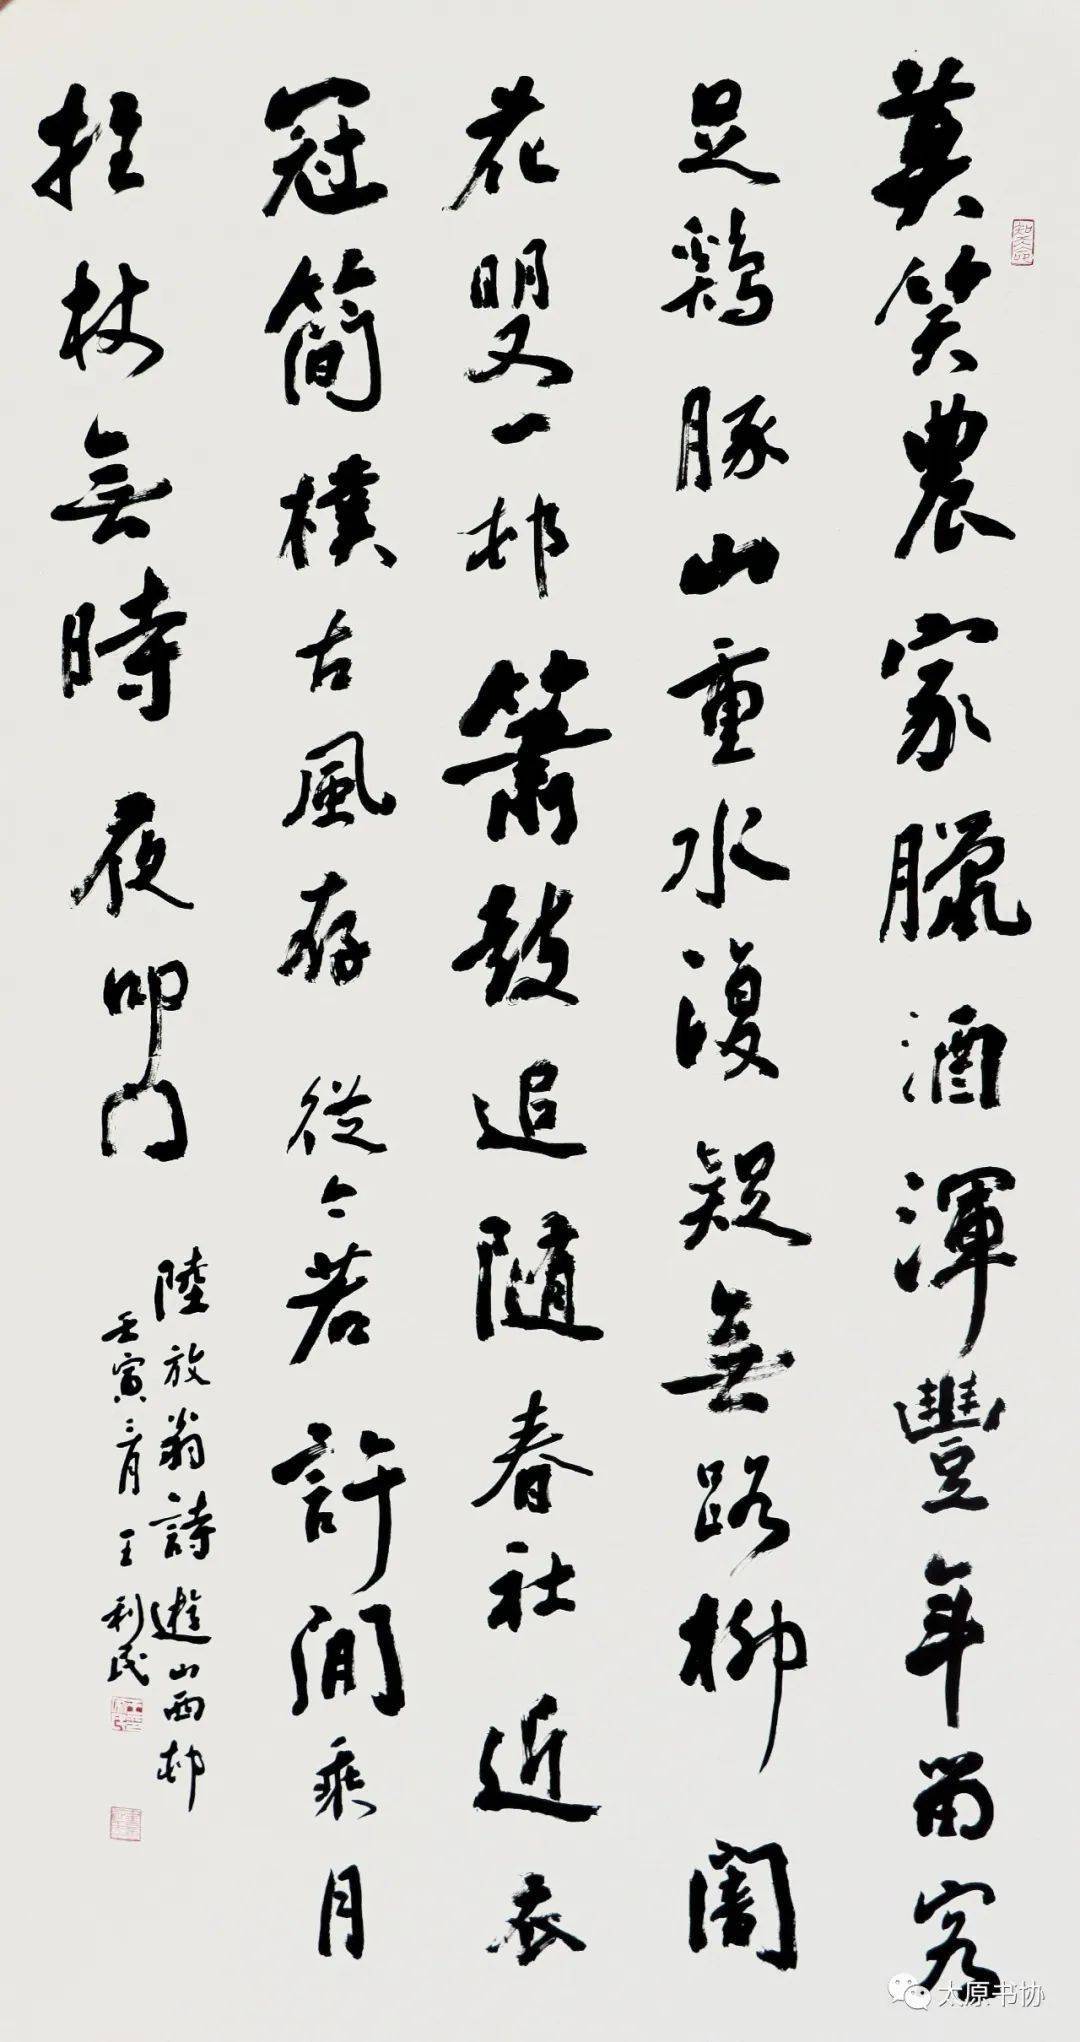 莫笑農家臘酒渾豐年留客
足鷄豚山重水複疑無路柳闇
花明又一邨簫鼓追隨春社近衣
冠簡樸古風存從今若許閒乘月
拄杖無時夜叩門
陸放翁詩遊山西邨
壬寅三月王利民
知天命
太原书协